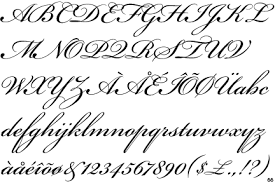 ABCDEFGHIJKL
MNOPQRSTUV
WXYZÀÅÉÎÕÖÜabc
defghijklmnopqrstuvwxyz
àåéîõø&1234567890($£.,!?)
66